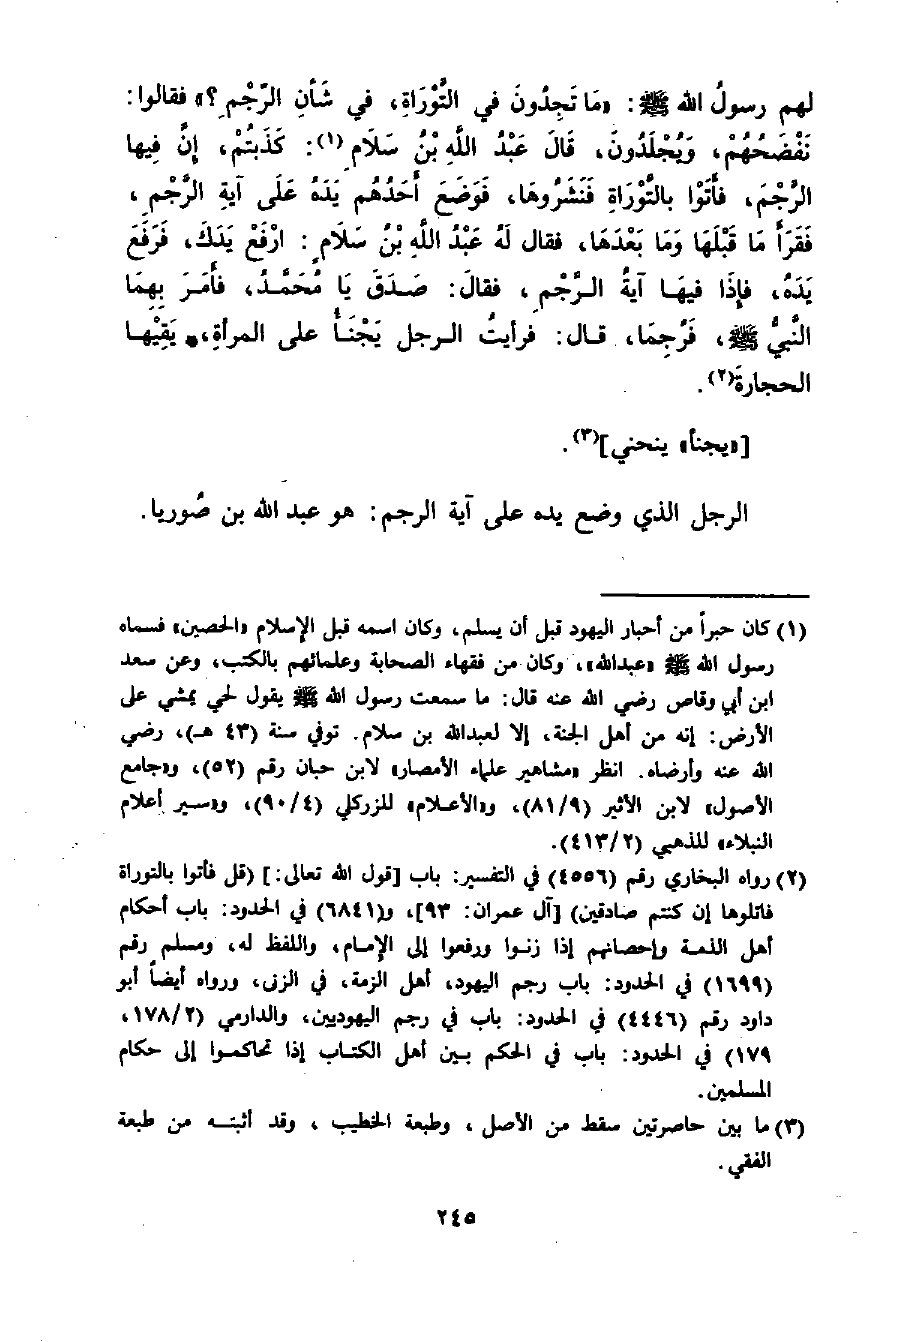 لهم رسولُ الله ﷺ: «مَا تَجِدُونَ في التَّوْرَاةِ، في شَأْنِ الرَّجْمِ؟» فقالوا:
نَفْضَحُهُمْ، وَيُجْلَدُونَ، قَالَ عَبْدُ اللَّهِ بْنُ سَلَامٍ(١): كَذَبتُمْ، إنَّ فِيها
الرَّجْمَ، فأَتَوْا بالتَّوْرَاةِ فَنَشَرُوهَا، فَوَضَعَ أَحَدُهُم يَدَهُ عَلَى آيَةِ الرَّجْمِ،
فَقَرَأَ مَا قَبْلَهَا وَمَا بَعْدَهَا، فقال لَهُ عَبْدُ اللَّهِ بْنُ سَلَامٍ: ارْفَعْ يَدَكَ، فَرَفَعَ
يَدَهُ، فإِذَا فيهَا آيَةُ الرَّجْمِ، فقالَ: صَدَقَ يَا مُحَمَّدُ، فأَمَرَ بِهِمَا
النَّبيُّ ﷺ، فَرُجِمَا، قال: فرأيتُ الرجل يَجْنَأُ على المرأةِ، يَقِيْها
الحجارةَ(٢).
[«يجنأ» ينحني](٣).
الرجل الذي وضع يده على آية الرجم: هو عبد الله بن صُوريا.
(١) كان حبراً من أحبار اليهود قبل أن يسلم، وكان اسمه قبل الإسلام «الحصين» فسماه
رسول الله ﷺ «عبدالله»، وكان من فقهاء الصحابة وعلمائهم بالكتب، وعن سعد
ابن أبي وقاص رضي الله عنه قال: ما سمعت رسول الله ﷺ يقول لحي يمشي على
الأرض: إنه من أهل الجنة، إلا لعبدالله بن سلام. توفي سنة (٤٣ هـ)، رضي
الله عنه وأرضاه. انظر «مشاهير علماء الأمصار» لابن حبان رقم (٥٢)، و«جامع
الأصول» لابن الأثير (٨١/٩)، و«الأعلام» للزركلي (٩٠/٤)، و«سير أعلام
النبلاء» للذهبي (٤١٣/٢).
(٢) رواه البخاري رقم (٤٥٥٦) في التفسير: باب [قول الله تعالى:] (قل فأتوا بالتوراة
فاتلوها إن كنتم صادقين) [آل عمران: ٩٣]، و(٦٨٤١) في الحدود: باب أحكام
أهل الذمة وإحصانهم إذا زنوا ورفعوا إلى الإمام، واللفظ له، ومسلم رقم
(١٦٩٩) في الحدود: باب رجم اليهود، أهل الزمة، في الزنى، ورواه أيضاً أبو
داود رقم (٤٤٤٦) في الحدود: باب في رجم اليهوديين، والدارمي (١٧٨/٢،
١٧٩) في الحدود: باب في الحكم بين أهل الكتاب إذا تحاكموا إلى حكام
المسلمين.
(٣) ما بين حاصرتين سقط من الأصل، وطبعة الخطيب، وقد أثبته من طبعة
الفقي.
٢٤٥